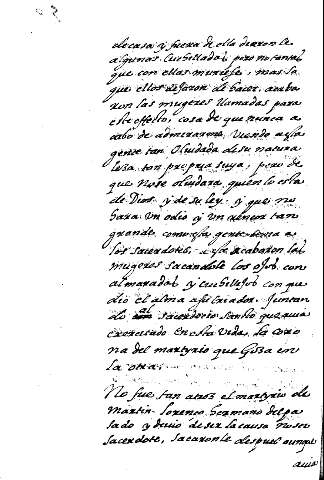 de casa y fuera de ella dieron le
algunas cuchilladas, pero no tantas
que con ellas muriese, mas lo
que ellos dejaron de hacer, acaba
ron las mugeres llamadas para
este effecto, cosa de que nunca a
cabo de admirarme viendo a esta
gente tan olvidada de su natura
leza tan propria suya, pero de
que no se olvidara quien lo esta
de Dios, y de su ley. y que no
hara un odio y un rencor tan
grande como esta gente tenia a
los sacerdotes, assi acabaron las
mugeres sacandole los ojos con
almaradas y cuchillos con que
dio el alma a su Criador. Juntan
do al sacerdocio santo que avia
exercitado en esta vida, la coro
na del martyrio que goza en
la otra.
No fue tan atroz el martyrio de
Martin Lorenço hermano del pa
sado y devio de ser la causa no ser
sacerdote, sacaronle despues aunque
avia